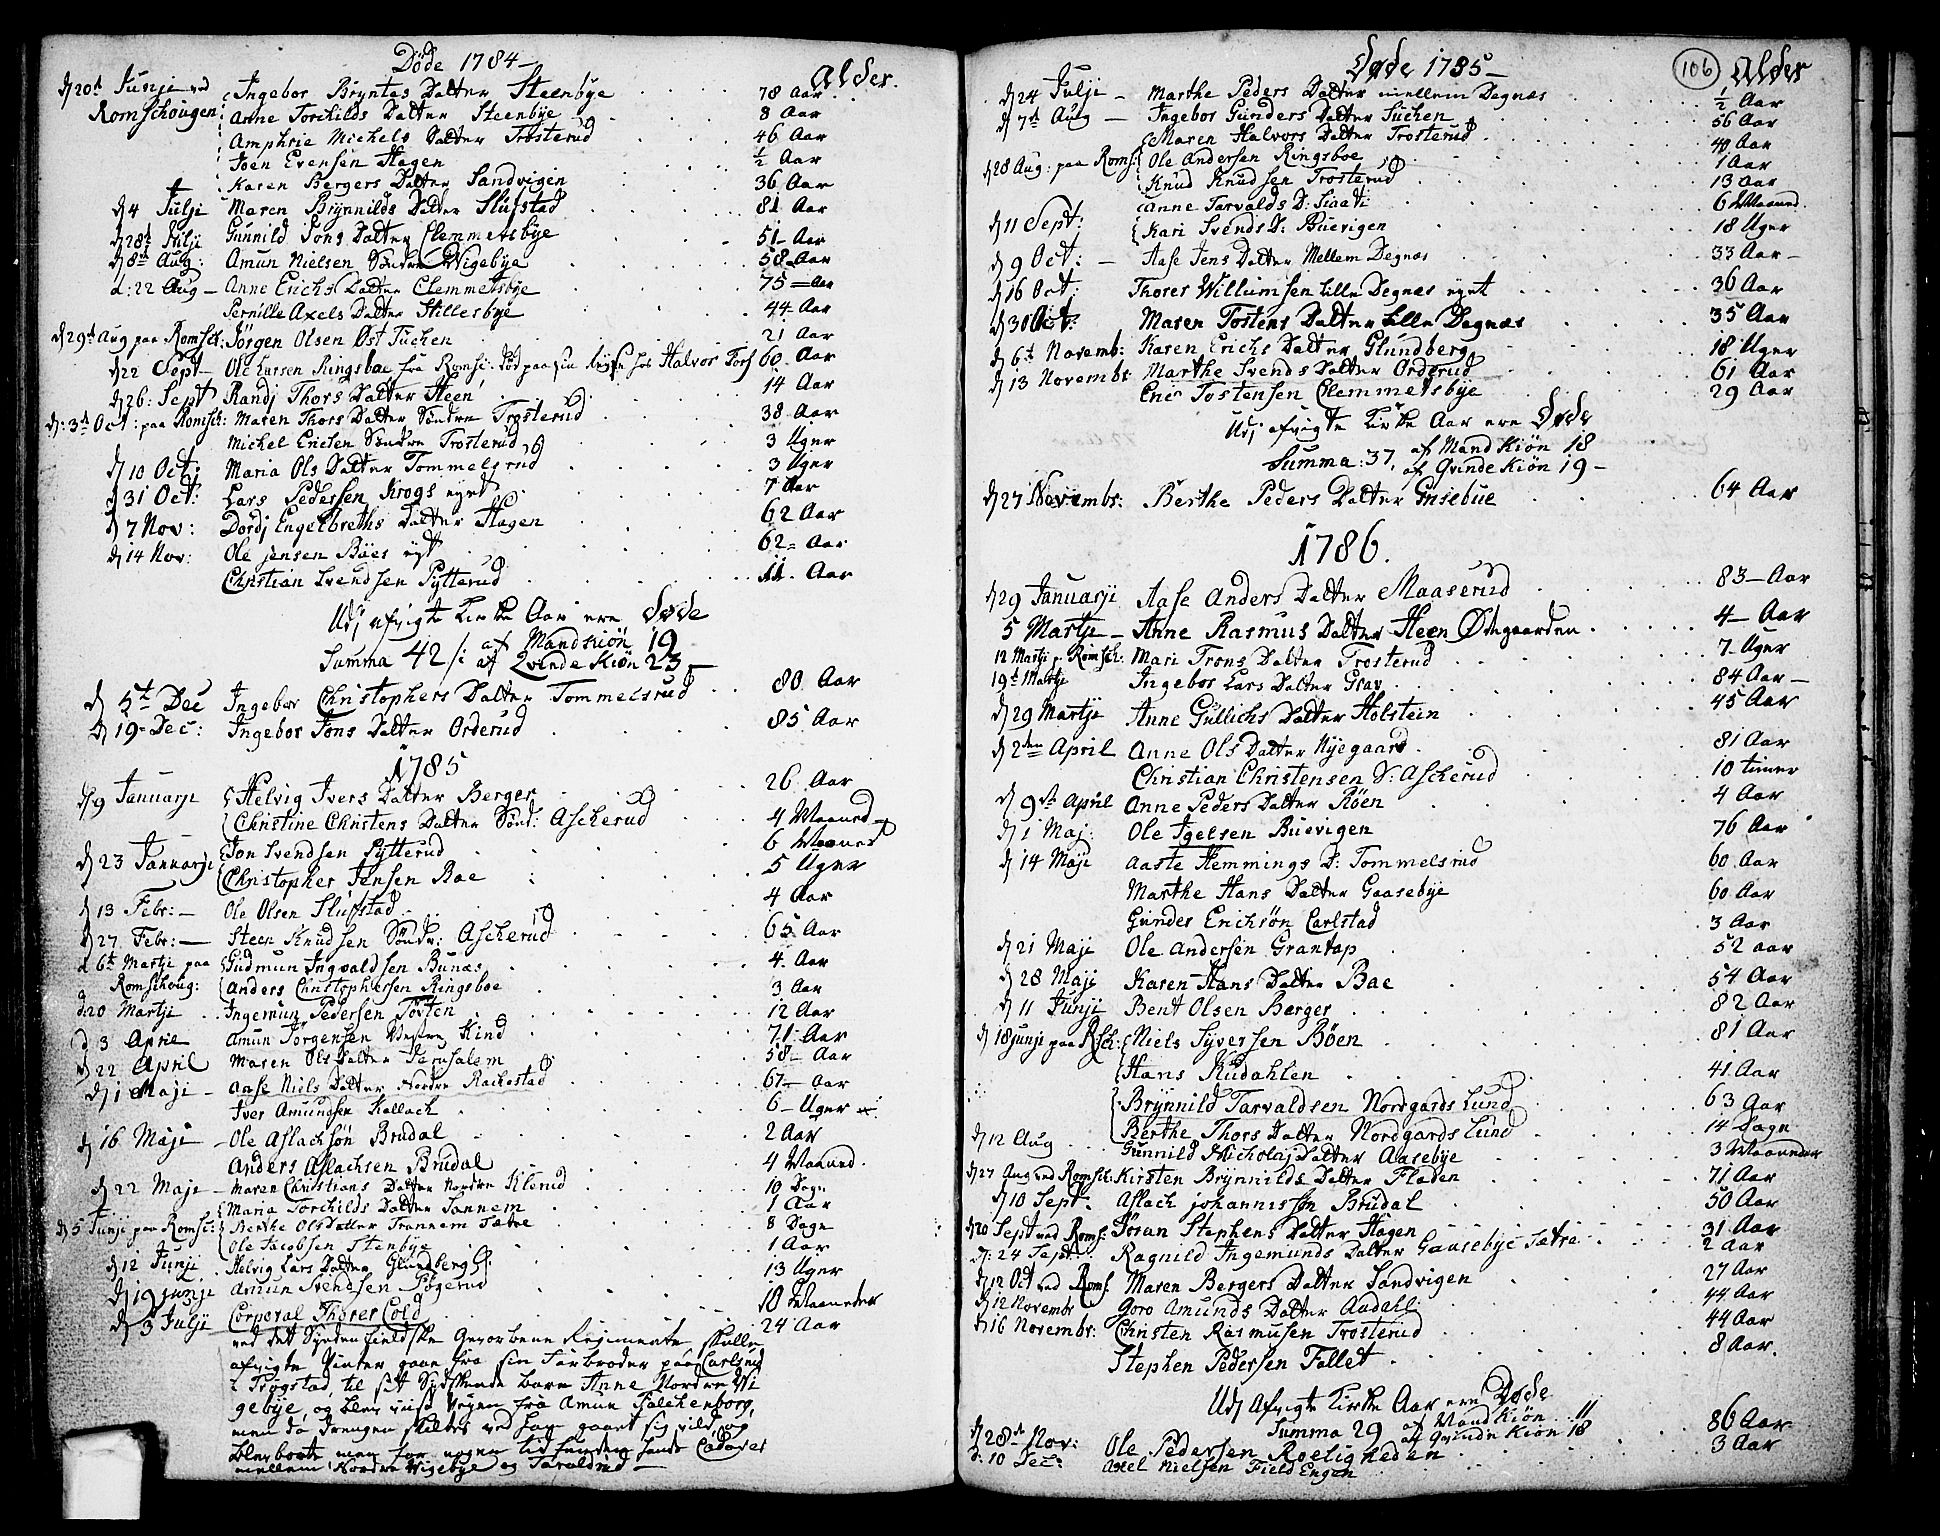 Døde 1784 — Alder.
d 20de Junji ved Ingebor Bryntes Datter Steenbye 78 Aar
Romschougen: Anne Torchilds Datter Steenbye 8 Aar
Amphrie Michels Datter Trosterud 46 Aar
Joen Evensen Hagen ½ Aar
Karen Bergers Datter Sandvigen 36 Aar
d 4 Julji Maren Brynnilds Datter Slufstad 81 Aar
d 28d Julji Gunnild Jons Datter Clemmetsbye 51 Aar
d 8de Aug: Amun Nielsen Søndre Wigebye 58 Aar
d: 22 Aug — Anne Erichs Datter Clemmetsbye 75 — Aar
Pernille Axels Datter Stillesbye 44 Aar
d 29d Aug paa Romsch: Jörgen Olsen Øst Tuchen 21 Aar
d 22 Sept — Ole Larsen Ringsboe fra Romsc: død paa sin reise hos Halvor Torp 60 Aar
d 26: Sept Randj Thors Datter Heen 14 Aar
d: 3d Oct: paa Romsch: Maren Thors Datter Söndre Trosterud 38 Aar
Michel Ericsen Söndre Trosterud 3 Uger
d 10 Oct: Maria Ols Datter Tommelsrud 3 Uger
d 31 Oct: Lars Pedersen Krogs eyet 7 Aar
d 7 Nov: Dordj Engelbreths Datter Hagen 62 Aar
d 14 Nov: Ole Jensen Böes eyt 62 Aar
Christian Svendsen Sytterud 11 Aar
Udj afvigte Kirke Aar ere Døde
Summa 42 /: af Mandkiön 19
af Qvinde Kiön 23
d 5te Dec Ingebor Christophers Datter Tommelsrud 80 Aar
d 19 Dec: Ingebor Jons Datter Orderud 85 Aar
1785
d 9 Januarji Helvig Ivers Datter Berger 26 Aar
Christine Christens Datter Sönd: Ascherud 4 Maaned
d 23 Januarji Jon Svendsen Sytterud 6 Maaned
Christopher Jensen Boe 5 Uger
d 13 Febr: — Ole Olsen Slufstad 4 Aar
d 27 Febr: — Steen Knudsen Söndr: Ascherud 65 Aar
d 6te Martji paa Gudmun Ingvaldsen Bunæs 4 Aar
Romschoug: Anders Christophersen Ringsboe 3 Aar
d 20 Martji Ingemun Pedersen Tosten 12 Aar
d 3 April Amun Jörgensen Vestre Kind 71 Aar
d 22 April Maren Ols Datter Jerusalem 58 Aar
d 1 Maji — Aase Niels Datter Nordre Rackestad 67 — Aar
Iver Amundsen Kallach 6 — Uger
d 16 Maji — Ole Aslachsön Brudal 2 Aar
Anders Aslachsen Brudal 4 Maaned
d 22 Maji — Maren Christians Datter Nordre Klerud 10 Dage
Maria Torchilds Datter Sannem 1 Aar
d 5 Junji paa Romsc: Berthe Ols Datter Trannem Sætre 8 Dage
Ole Jacobsen Stenbye 1 Aar
d 12 Junji Helvig Lars Datter Glundberg 13 Uger
d 19 Junji Amun Svendsen Sögerud 18 Maaneder
d 3 Julji Corporal Thorer Cold 24 Aar
ved det Syndenfieldske Gevorbene Regimente, skulle
afvigte Vinter gaae fra sin Farbroder paa Carlsrud
i Trøgstad, til sit Sydskende barn Anne Nordre Wi
gebye, og blev viist Veyen fra Amun Falchenborg,
men da Drengen skildtes ved ham gaaet sig vild, og
blev borte men for nogen tid funden hands Cadaver
mellem Nordre Wigebye og Taraldrud —
Døde 1785 — 106 Alder
d 24 Julji — Marthe Peders Datter mellem Degnæs ½ Aar
d 7de Aug — Ingebor Gunders Datter Tuchen 56 Aar
Maren Halvors Datter Trosterud 40 Aar
d 28 Aug: paa Roms: Ole Andersen Ringsboe 1 Aar
Knud Knudsen Trosterud 13 Aar
Anne Tarvalds D: 6 Maaned
d 11 Sept: Kari Svends D: Buevigen 18 Uger
d 9 Oct: — Aase Jens Datter Mellem Degnæs 33 Aar —
d 16 Oct: Thorer Willumsen Lille Degnæs eyet 36 Aar
d 30 Oct: Maren Tostens Datter Lille Degnæs 35 Aar
d 6te Novemb: Karen Erichs Datter Glundberg 18 Uger
d 13 Novembr Marthe Svends Datter Orderud 61 Aar
Eric Tostensen Clemmetsbye 29 Aar
Udj afvigte Kirke Aar ere Døde
Summa: 37, af Mand Kiön 18
af Qvinde Kiön 19 —
d 27 Novembr: Berthe Peders Datter Grisebue 64 Aar
1786.
d 29 Januarji Aase Anders Datter Maaserud 83 — Aar
5 Martji — Anne Rasmus Datter Heen Ødegaarden 4 — Aar
12 Martji p. Romsch: Mari Trons Datter Trosterud 7 Uger
19d Martji Ingebor Lars Datter Grav 84 Aar —
d 29 Martji Anne Gullichs Datter Holstein 45 Aar
d 2den April Anne Ols Datter Nyegaard 81 Aar
Christian Christensen S: Ascherud 10 timer
d 9de April Anne Peders Datter Röen 4 Aar
d 1 Maj: Ole Igelsen Buevigen 76 Aar
d 14 Maje Aaste Hemmings D: Tommelsrud 60 Aar
Marthe Hans Datter Gaasebye 60 Aar
Gunder Erichsön Carlstad 3 Aar
d 21 Maji Ole Andersen Grantop 52 aar
d 28 Maji Karen Hans Datter Boe 54 Aar
d 11 Junji Bent Olsen Berger 82 Aar
d 18 junji paa Rsch: Niels Syversen Böen 81 Aar
Hans Kudahlen 41 Aar
Brynnild Tarvaldsen Nordgards Lund 63 Aar
Berthe Thors Datter Nordgards Lund 14 Dage
d 12 Aug Gunnild Nicholaj Datter Aasebye 3 Maaneder
d 27 Aug ved Romsch: Kirsten Brynnilds Datter Fladen 71 Aar
d 10 Sept. Aslach johannissön Brudal 50 Aar
d 20 Sept ved Roms: Joran Stephens Datter Hagen 31 Aar
d: 24 Sept: Ragnild Ingemunds Datter Gaasebye Sætre 2 Aar
d 12 Oct ved Roms. Maren Bergers Datter Sandvigen 27 Aar
d 12 Novembr Goro Amunds Datter Audahl 44 Aar
d 16 Novembr: Christen Rasmusen Trosterud 44 Aar
Stephen Pedersen Fallet 8 Aar.
Udj Afvigte Kirke Aar ere Døde
Summa 29 af Mand Kiön 11
af Qvinde Kiön 18
d 28de Nov: Ole Pedersen Roeligheden 86 Aar
d. 10 Dec: Axel Nielsen Field Engen 3 Aar